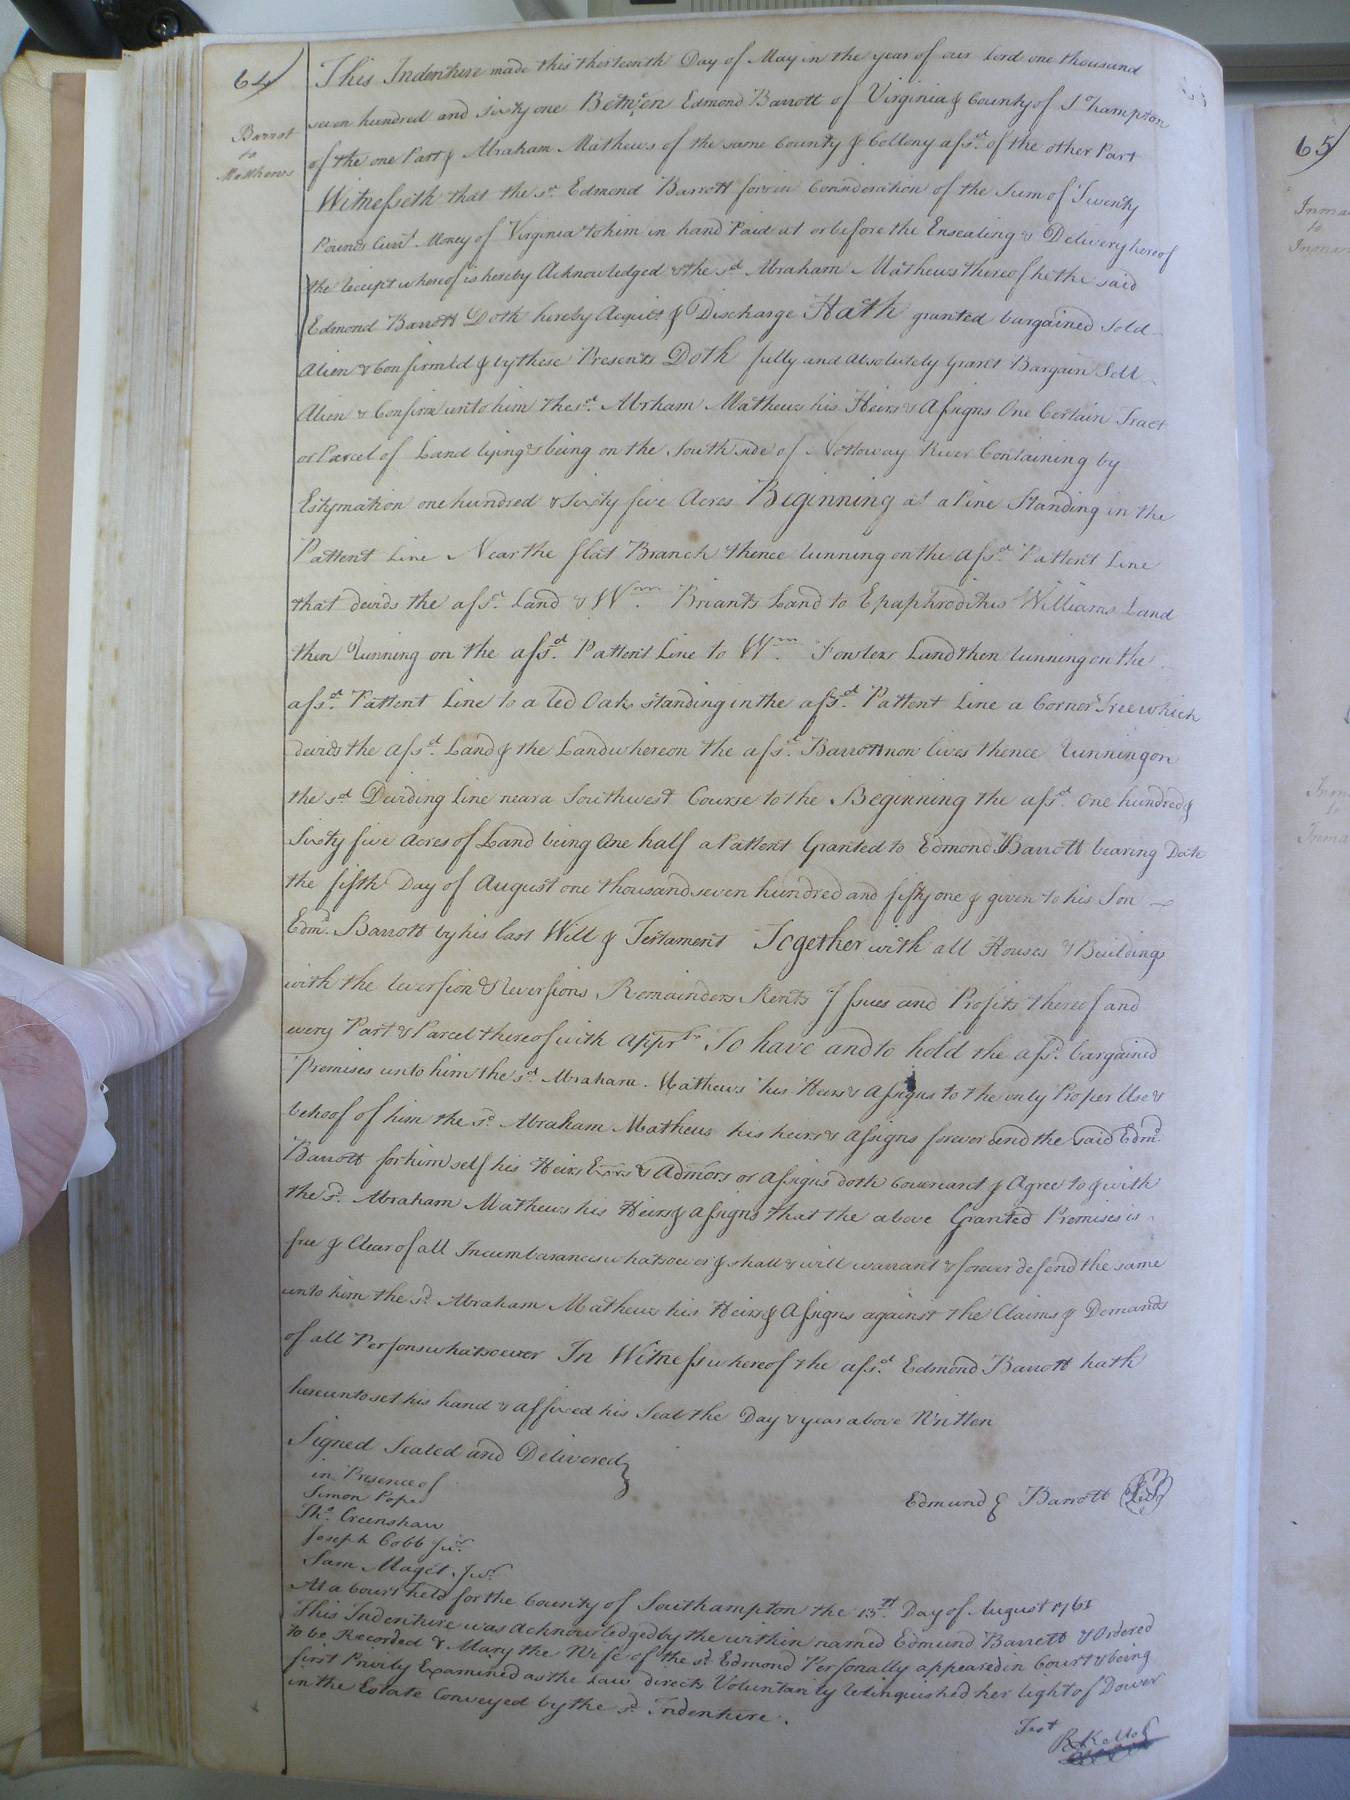 64
Barrot
to
Matthews
This Indenture made this thirteenth Day of May in the year of our Lord one thousand
seven hundred and sixty one Between Edmond Barrott of Virginia & County of S Hampton
of the one Part & Abraham Mathews of the same County & Collony afsd. of the other Part
Witnesseth that the sd. Edmond Barrott for & in Consideration of the Sum of Twenty
Pounds Currt. Money of Virginia to him in hand Paid at or before the Ensealing & Delivery hereof
the receipt whereof is hereby Acknowledged & the sd Abraham Mathews thereof he the said
Edmond Barrott Doth hereby Acquit & Discharge Hath granted bargained Sold
Alien & Confirm'd & by these Presents Doth fully and absolutely Grant Bargain Sell
Alien & Confirm unto him the sd. Abrham Mathews his Heirs & Assigns One Certain Tract
or Parcel of Land lying & being on the South side of Nottoway River Containing by
Estymation one hundred & Sixty five Acres Beginning at a Pine Standing in the
Pattent Line Near the flat Branch thence running on the afsd. Pattent Line
that devids the afsd. Land & Wm. Briants Land to Epaphroditus Williams Land
then running on the afsd. Pattent Line to Wm. Fowlers Land then running on the
afsd. Pattent Line to a red Oak standing in the afsd. Pattent Line a Corner Tree which
devids the afsd. Land & the Land whereon the afsd. Barrott now lives thence running on
the sd Deviding line near a Southwest Course to the Beginning the afsd. one hundred &
Sixty five Acres of Land being One half a Pattent Granted to Edmond Barrott bearing Date
the fifth Day of August one thousand seven hundred and fifty one & given to his Son
Edmd. Barrott by his last Will & Testament Together with all Houses & Buildings
with the reversion & reversions Remainders Rents Issues and Profits thereof and
every Part & Parcel thereof with apprts To have and to hold the afsd. bargained
Premises unto him the sd. Abraham Mathews his Heirs & Assigns to the only Proper Use &
behoof of him the sd. Abraham Mathews his heirs & Assigns forever and the said Edmd.
Barrott for himself his Heirs Exrs & Admors or Assigns doth Covenant & Agree to & with
the sd. Abraham Mathews his Heirs & assigns that the above Granted Premises is
free & Clear of all Incumbarances whatsoever & shall & will warrant & forever defend the same
unto him the sd. Abraham Mathews his Heirs & Assigns against the Claims & Demands
of all Persons whatsoever In Witness whereof the afsd. Edmond Barrott hath
hereunto set his hand & affixed his Seal the Day & year above Written
Signed Sealed and Delivered
in Presence of
Simon Pope
Thos. Crenshaw
Joseph Cobb Jur.
Sam Maget Jur.
Edmund Barrott
At a Court held for the County of Southampton the 13th. Day of August 1761
This Indenture was Acknowledged by the within named Edmund Barrett & Ordered
to be Recorded & Mary the Wife of the sd. Edmond Personally appeared in Court & being
first Privily Examined as the Law directs Voluntarily relinquished her right of Dower
in the Estate Conveyed by the sd. Indenture.
Test
R Kello
65
Inma
to
Inman
Inm
to
Inma